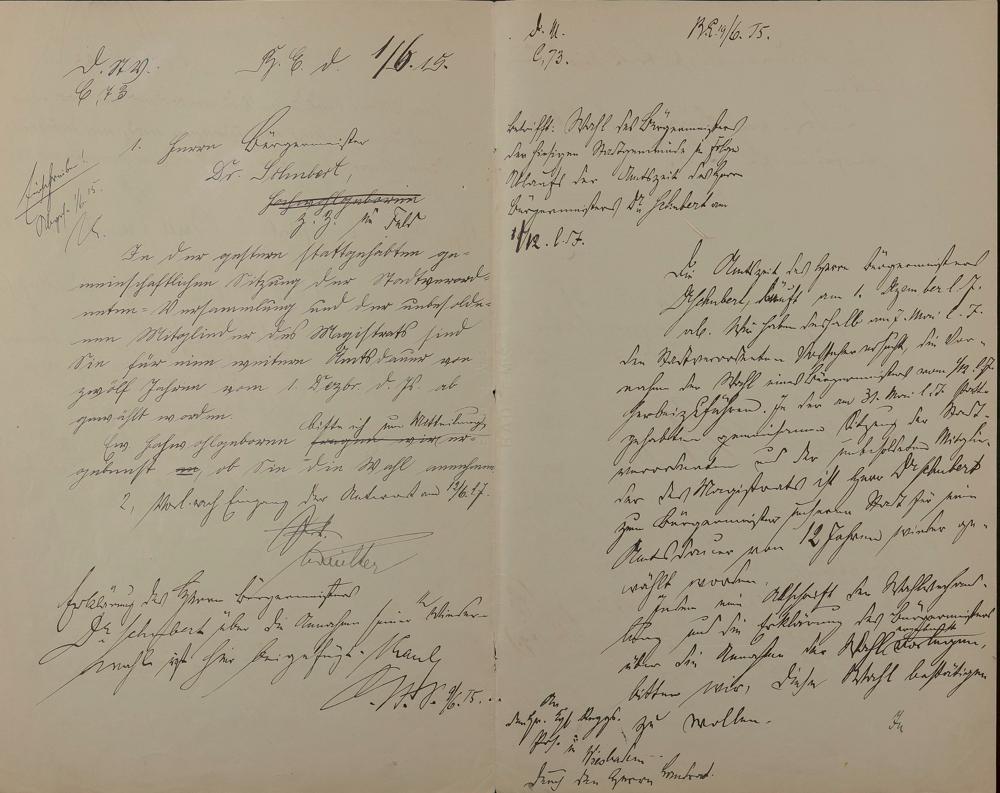 D. St. V.
C, 73
K. E. d. 1/6. 15.
Einschreiben!
1/6. 15.
1. Herrn Bürgermeister
Dr. Schubert,
Hochwohlgeboren
z. Z. im Feld
In der gestern stattgehabten ge-
meinschaftlichen Sitzung der Stadtverord-
neten-Versammlung und der unbesolde-
nen Mitglieder des Magistrats sind
Sie für eine weitere Amtsdauer von
zwölf Jahren vom 1. Dezbr. d. Js. ab
gewählt worden.
Ew. Hochwohlgeboren bitte ich um Mitteilung,
fragen wir er-
gebenst an, ob Sie die Wahl annehmen
2, Nach Eingang der Antwort
Erklärung des Herrn Bürgermeisters
Dr Schubert über die Annahme seiner Wieder-
wahl ist hier beigefügt.
9/6. 15.
D. M.
C, 73.
9/6. 15.
Betrifft: Wahl des Bürgermeisters
der hiesigen Stadtgemeinde in Folge
Ablauf der Amtszeit des Herrn
Bürgermeisters Dr Schubert am
1/12. l. J.
Die Amtszeit des Herrn Bürgermeisters
Dr Schubert, läuft am 1. Dezember l. J.
ab. Wir haben deshalb am 7. Mai l. J.
den Stadtverordneten Vorsteher ersucht, die Vor-
nahme der Wahl eines Bürgermeisters vom 1/12. l. J.
herbeizuführen. In der am 31. Mai l. J. statt-
gehabten gemeinsamen Sitzung der Stadt-
verordneten und der unbesoldeten Mitglie-
der des Magistrats ist Herr Dr Schubert
zum Bürgermeister unserer Stadt für eine
Amtsdauer von 12 Jahren wieder ge-
wählt worden.
Indem wir Abschrift der Wahlverhand-
lung und die Erklärung des Bürgermeisters
über die Annahme der Wahl vorlegen,
bitten wir, diese Wahl bestätigen
zu wollen.
An
den Hr. Kgl. Reggs.
Präs. in
Wiesbaden
durch den Herrn Landrat.